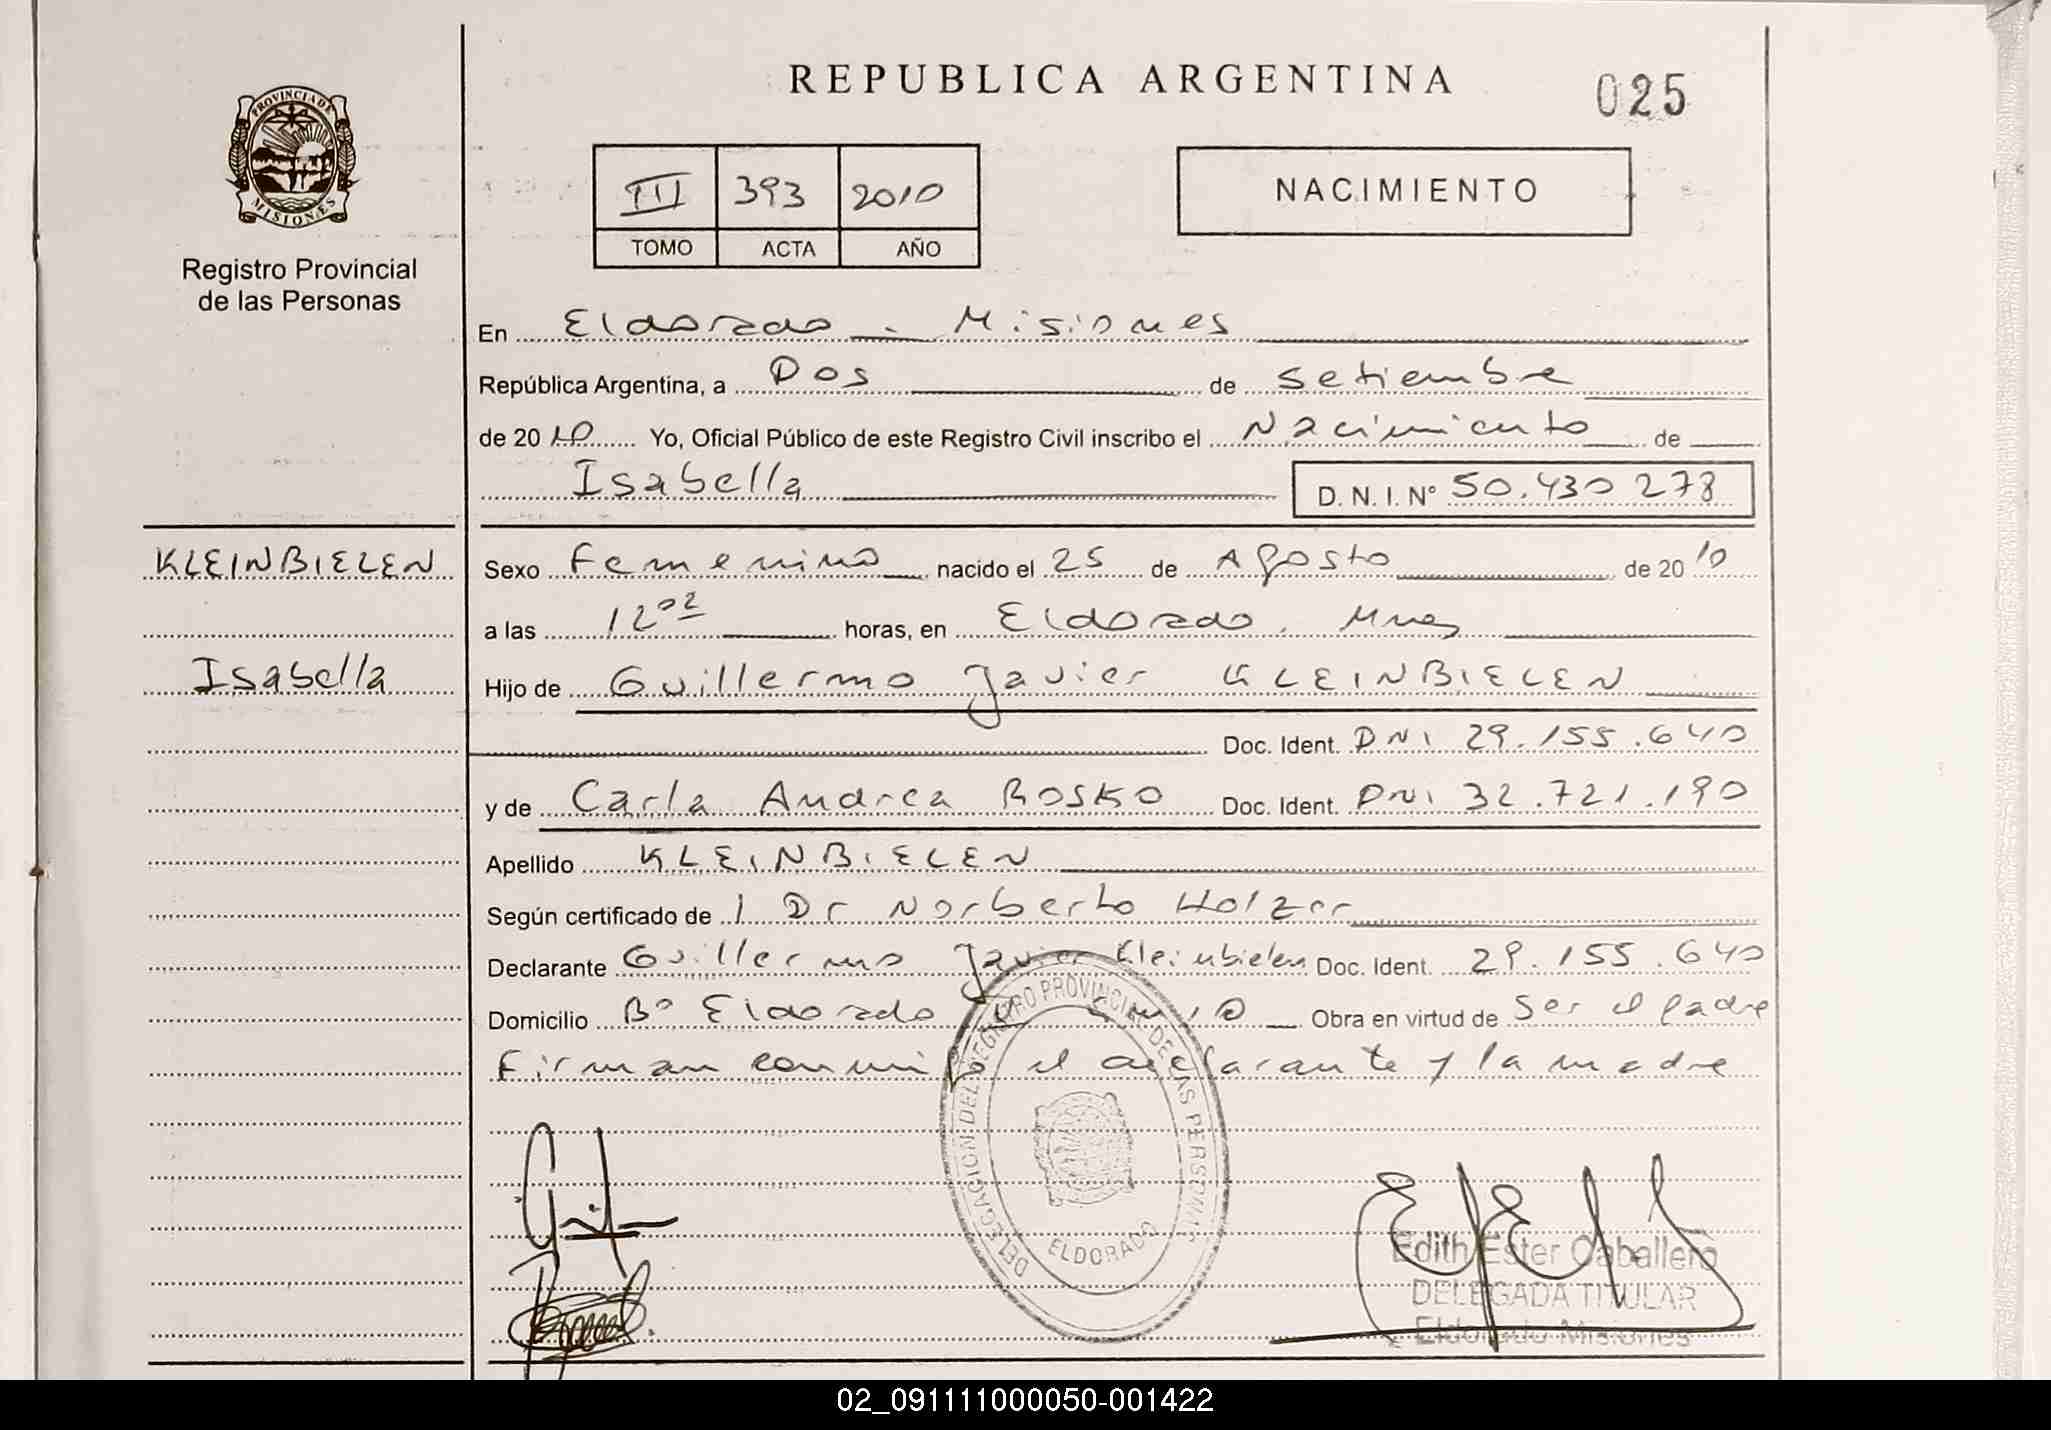 REPUBLICA ARGENTINA
025
PROVINCIA DE
MISIONES
Registro Provincial
de las Personas
III 393 2010
TOMO ACTA AÑO
NACIMIENTO
En Eldorado - Misiones
República Argentina, a Dos de setiembre
de 2010 Yo, Oficial Público de este Registro Civil inscribo el Nacimiento de
Isabella D. N. I. N° 50.430 278
KLEINBIELEN
Isabella
Sexo Femenino nacido el 25 de Agosto de 2010
a las 12 02 horas, en Eldorado. Mnes
Hijo de Guillermo Javier KLEINBIELEN
Doc. Ident. DNI 29.155.640
y de Carla Andrea BOSKO Doc. Ident. DNI 32.721.190
Apellido KLEINBIELEN
Según certificado de l Dr Norberto Holzer
Declarante Guillermo Javier Kleinbielen Doc. Ident. 29.155.640
Domicilio B° Eldorado Obra en virtud de Ser el padre
Firman conmigo el declarante y la madre
DELEGACION DEL REGISTRO PROVINCIAL DE LAS PERSONAS
ELDORADO
Edith Ester Caballero
DELEGADA TITULAR
Eldorado Misiones
02_091111000050-001422